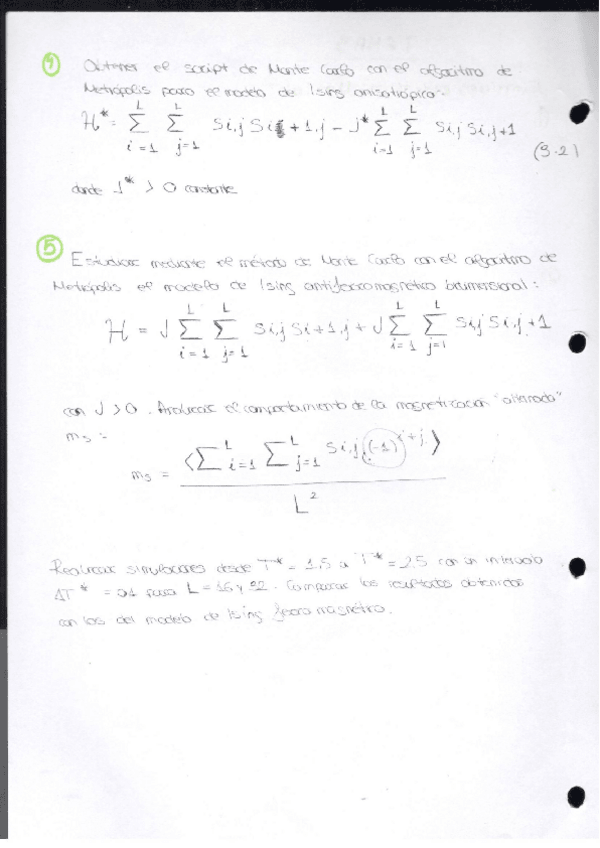 4 Obtener el script de Monte Carlo con el algoritmo de
Metrópolis para el modelo de Ising anisotrópico:
H* = Σ_{i=1}^{L} Σ_{j=1}^{L} Si,j Si+1,j - J* Σ_{i=1}^{L} Σ_{j=1}^{L} Si,j Si,j+1
(9.2)
donde J* > 0 constante
5 Estudiar mediante el método de Monte Carlo con el algoritmo de
Metrópolis el modelo de Ising antiferromagnético bidimensional:
H = J Σ_{i=1}^{L} Σ_{j=1}^{L} Si,j Si+1,j + J Σ_{i=1}^{L} Σ_{j=1}^{L} Si,j Si,j+1
con J > 0. Analizar el comportamiento de la magnetización "alternada"
ms =
ms = ⟨Σ_{i=1}^{L} Σ_{j=1}^{L} Si,j (-1)^{i+j}⟩ / L²
Realizar simulaciones desde T* = 1.5 a T* = 2.5 con un intervalo
ΔT* = 0.1 para L = 16 y 32. Comparar los resultados obtenidos
con los del modelo de Ising ferromagnético.